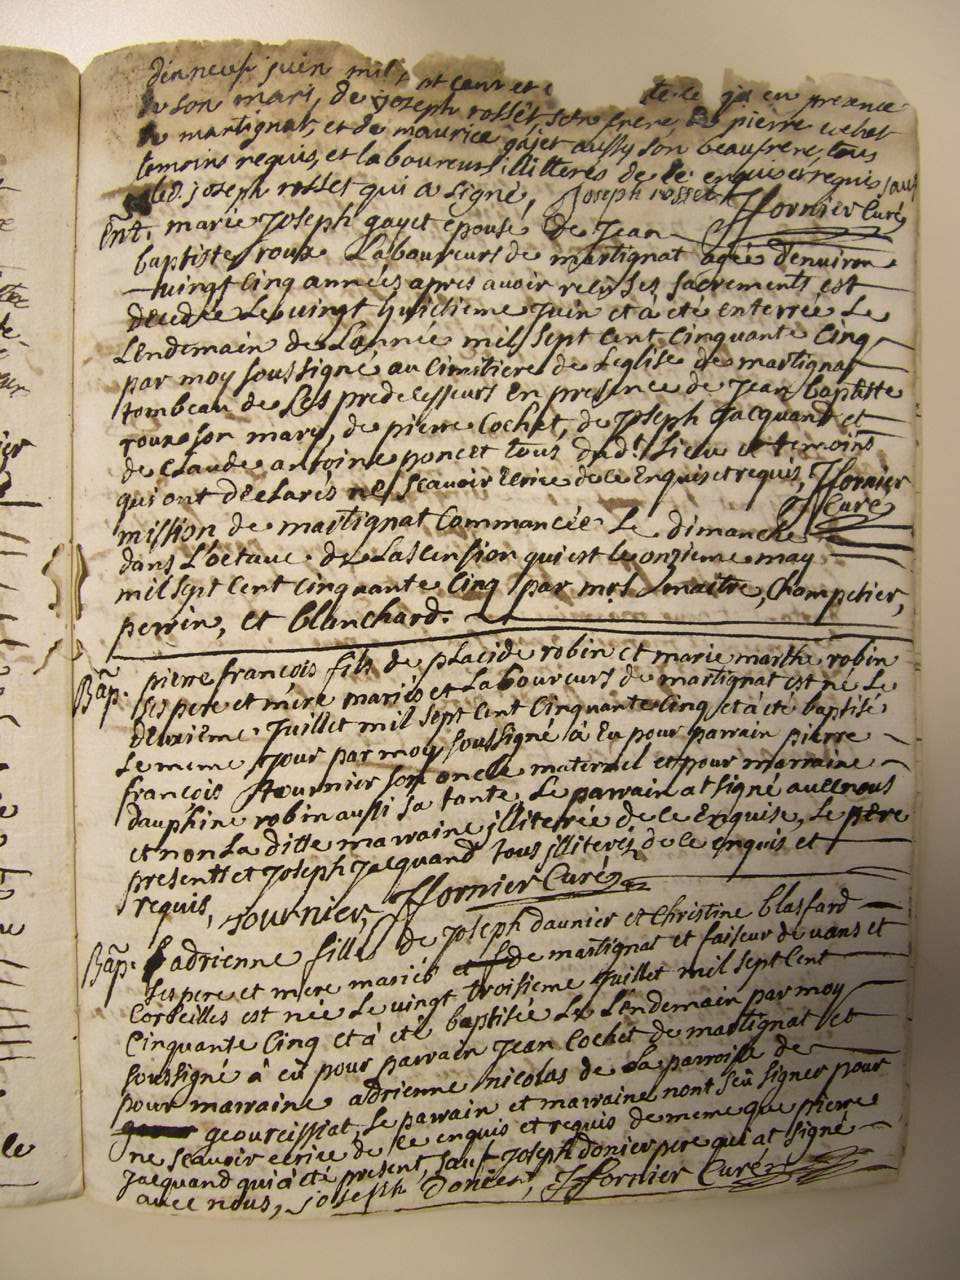 dixneuf juin mil sept cent et
de son mari, de joseph rosset son frere de pierre cochet
de martignat, et de maurice gajet aussy son beaufrere, tous
temoins requis, et laboureurs illitteres de ce enquis et requis sauf
led. joseph rosset qui a signé, Joseph rosset ffornier Curé
Ent. marie Joseph gayet epouse de Jean
baptiste roux Laboureurs de martignat agée d'environ
vingt cinq années apres avoir recu ses sacrements est
decedée Le vingt huitieme Juin et a été enterrée Le
Lendemain de L'année mil sept cent cinquante cinq
par moy soussigné au cimitiere de L'eglise de martignat
tombeau de ses predecesseurs En presence de Jean baptiste
roux son mary, de pierre Cochet, de Joseph Jacquand et
de Claude antoine poncet tous dud.t Lieu et temoins
qui ont declarés ne scavoir ecrire de ce Enquis et requis, ffornier
Curé
mission de martignat Commancée Le dimanche
dans L'octave de Lascension qui est le onzieme may
mil sept cent cinquante cinq par mrs maitre, Champetier,
perrin, et blanchard.
Bap. pierre francois fils de placide robin et marie marthe robin
ses pere et mere mariés et Laboureurs de martignat est né Le
deuxieme Juillet mil sept cent cinquante cinq et a été baptisé
Le meme jour par moy soussigné à Eu pour parrain pierre
francois tournier son oncle maternel et pour marraine
dauphine robin aussi sa tante, Le parrain at signé avec nous
et non La ditte marraine illiterée de ce Enquise, Le pere
present et Joseph Jacquand tous illiterés de ce enquis et
requis, tournier, ffornier Curé
Bap. adrienne fille de Joseph daunier et Christine blaffard
ses pere et mere mariés de martignat et faiseur de vans et
Corbeilles est née Le vingt troisieme Juillet mil sept Cent
Cinquante Cinq et à eté baptisée Le Lendemain par moy
soussigné à eu pour parrain Jean Cochet de martignat et
pour marraine adrienne nicolas de La parroisse de
geourcissiat, Le parrain et marraine nont sçû signer pour
ne scavoir ecrire de ce enquis et requis de meme que pierre
Jacquand qui à eté present, sauf Joseph donier pere qui at signé
avec nous, joseph Donier, ffornier Curé